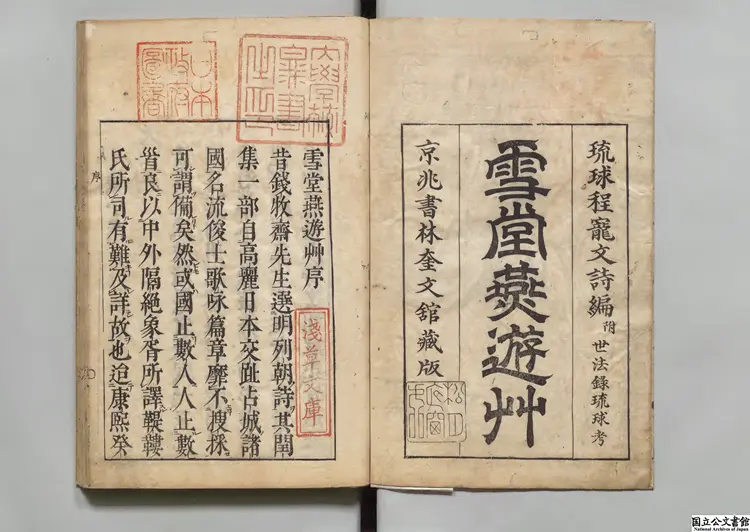 琉球程寵文詩編附世法錄琉球考
雪堂燕遊艸
京兆書林奎文舘藏版
雪堂燕遊艸序
昔錢收齋先生選明列朝詩其閏
集一部自高麗日本交趾占城諸
國名流俊士歌咏篇章靡不搜採
可謂備矣然或國止數人人止數
首良以中外隔絶象胥所譯鞮鞻
氏所司有難及詳故也迨康熙癸
序
淺草文庫
日本
政府
圖書
国立公文書館
National Archives of Japan